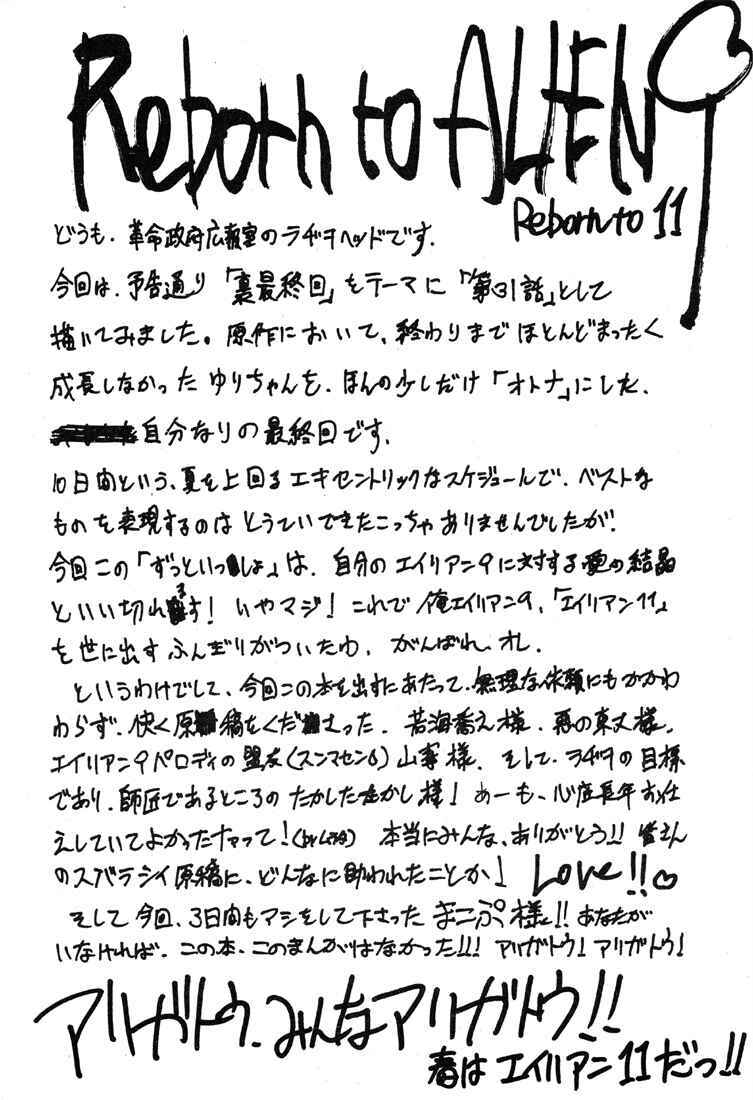 Reborn to ALIEN 9
Reborn to 11
どうも、革命政府広報室のラヂヲヘッドです。
今回は、予告通り「裏最終回」をテーマに「第31話」として
描いてみました。原作において、終わりまでほとんどまったく
成長しなかったゆりちゃんを、ほんの少しだけ「オトナ」にした、
自分なりの最終回です。
10日間という、夏を上回るエキセントリックなスケジュールで、ベストな
ものを表現するのはとうていできたこっちゃありませんでしたが、
今回この「ずっといっしょ」は、自分のエイリアン9に対する愛の結晶
といい切れます! いやマジ! これで俺エイリアン9、「エイリアン11」
を世に出すふんぎりがついたわ、がんばれ、オレ。
というわけでして、今回この本を出すにあたって、無理な依頼にもかかわ
わらず、快く原稿をくださった、若海喬え様、悪の東丈様、
エイリアン9パロディの盟友(スンマセン6)山專様、そして、ラヂヲの目標
であり、師匠であるところのたかしたたかし様! あーも、心底長年お仕
えしていてよかったナァって! 本当にみんな、ありがとう!! 皆さん
のスバラシイ原稿に、どんなに助われたことか! Love!!♡
そして今回、3日間もアシをして下さったまこぷ様!! あなたが
いなければ、この本、このまんがはなかった!!! アリガトウ! アリガトウ!
アリガトウ、みんなアリガトウ!!
春はエイリアン11だっ!!